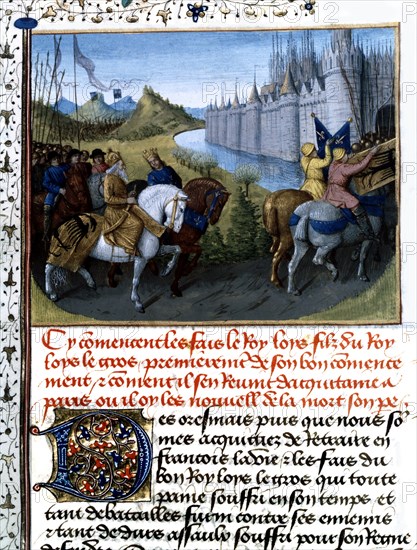 Cy cōmencent les fais le Roy loys filz du Roy
loys le gros. premieremēt de son bon cōmence
ment. & cōment il sen Reuint dacquitaine a
paris ou il oy les nouuell' de la mort son pe
Des oresmais puis que nous so
mes acquitez de Retraire en
francois la vie & les fais du
bon Roy loys le gros qui toute
paine souffri en son temps et
tant de batailles furnī contre ses ennemis
& tant de durs assaulx souffri pour son Regne